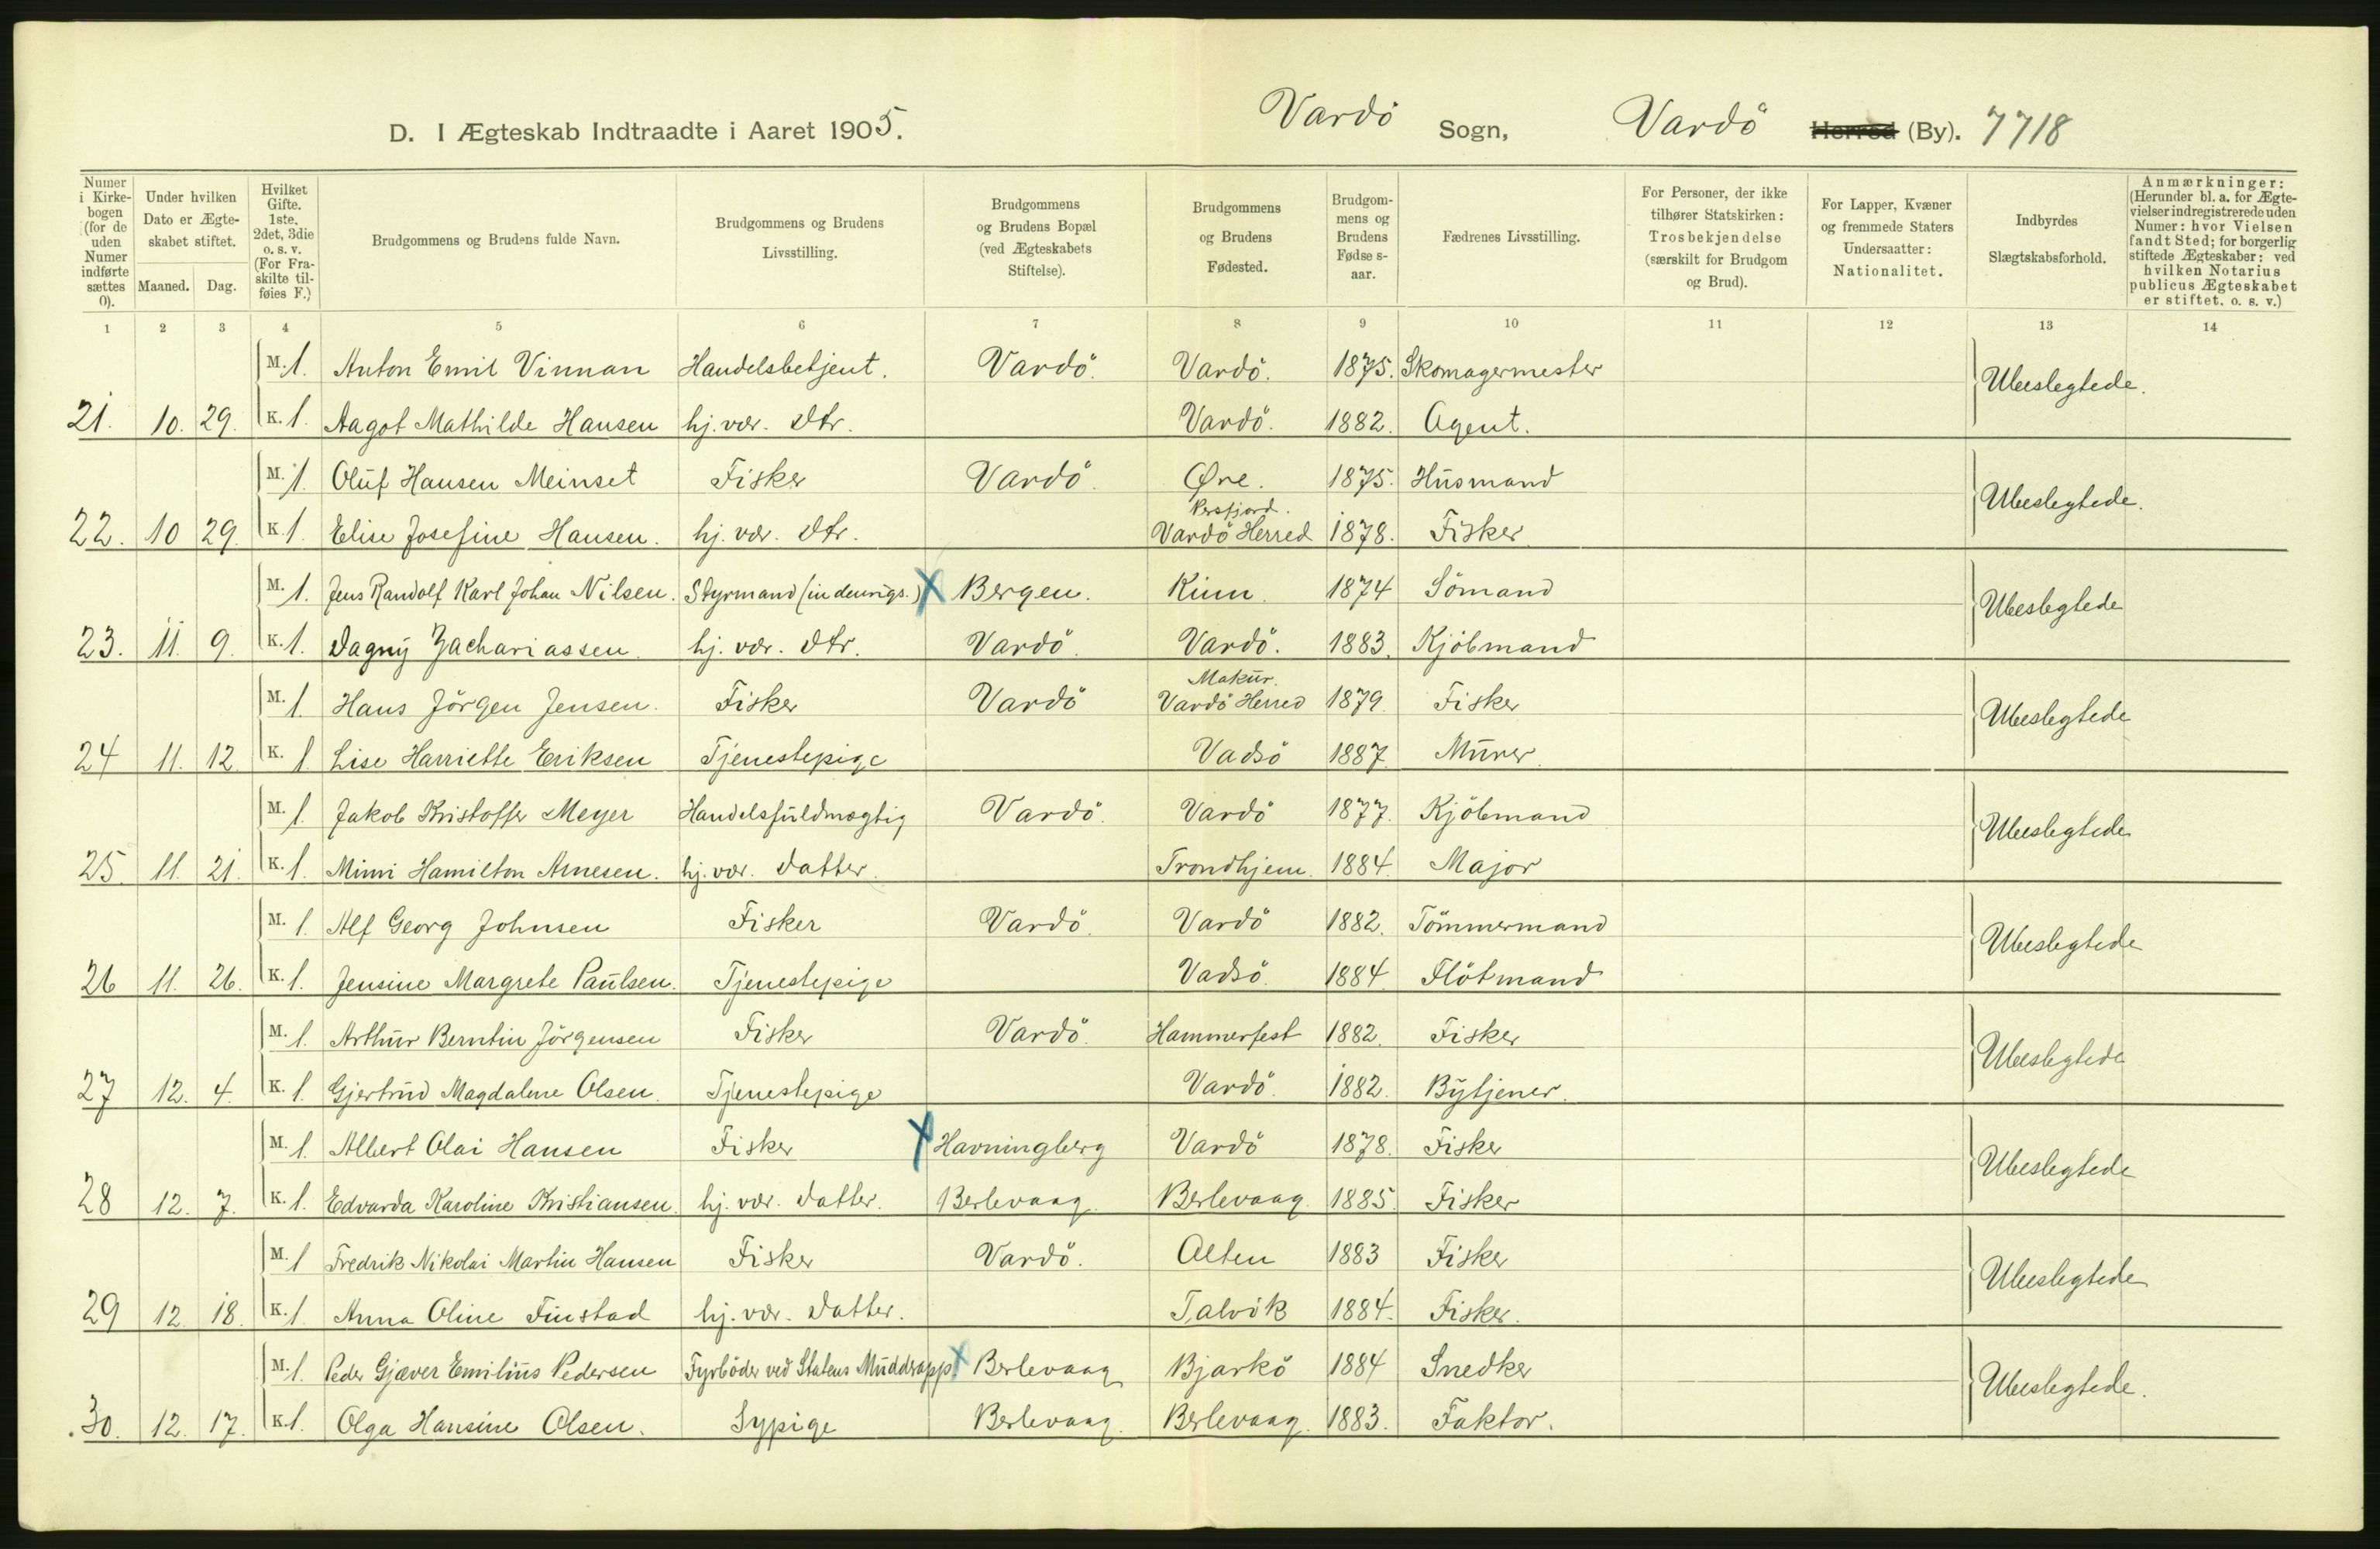 D. I Ægteskab Indtraadte i Aaret 1905. Vardö Sogn, Vardö Herred (By). 7718
Numer i Kirkebogen (for de uden Numer indførte sættes 0). Under hvilken Dato er Ægteskabet stiftet. Maaned. Dag. Hvilket Gifte. 1ste, 2det, 3die o. s. v. (For Fraskilte tilføies F.) Brudgommens og Brudens fulde Navn. Brudgommens og Brudens Livsstilling. Brudgommens og Brudens Bopæl (ved Ægteskabets Stiftelse). Brudgommens og Brudens Fødested. Brudgommens og Brudens Fødselsaar. Fædrenes Livsstilling. For Personer, der ikke tilhører Statskirken: Trosbekjendelse (særskilt for Brudgom og Brud). For Lapper, Kvæner og fremmede Staters Undersaatter: Nationalitet. Indbyrdes Slægtskabsforhold. Anmærkninger: (Herunder bl. a. for Ægtevielser indregistrerede uden Numer: hvor Vielsen fandt Sted; for borgerlig stiftede Ægteskaber: ved hvilken Notarius publicus Ægteskabet er stiftet, o. s. v.)
1 2 3 4 5 6 7 8 9 10 11 12 13 14
M. 1. Anton Emil Vinnan Handelsbetjent. Vardö. Vardö. 1875. Skomagermester Ubeslegtede.
21. 10. 29. K. 1. Aagot Mathilde Hansen hj. vær. Dtr. Vardö. 1882. Agent.
M. 1. Oluf Hansen Meinset Fisker Vardö. Øre. 1875. Husmand Ubeslegtede.
Persfjord.
22. 10 29. K. 1. Elise Josefine Hansen. hj. vær. Dtr. Vardö Herred 1878. Fisker
M. 1. Jens Randolf Karl Johan Nilsen. Styrmand (indenrigs.) X Bergen. Kinn. 1874 Sömand Ubeslegtede
23. 11. 9. K. 1. Dagny Zachariassen. hj. vær. Dtr. Vardö. Vardö. 1883. Kjöbmand
Makur.
M. 1. Hans Jörgen Jensen. Fisker Vardö Vardö Herred 1879. Fisker Ubeslegtede
24 11. 12. K. 1. Lise Harriette Eriksen Tjenestepige Vadsö 1887. Murer.
M. 1. Jakob Kristoffer Meyer Handelsfuldmægtig Vardö. Vardö 1877. Kjöbmand Ubeslegtede
25. 11. 21. K. 1. Mimi Hamilton Arnesen. hj. vær. Datter. Trondhjem. 1884. Major
M. 1. Alf Georg Johnsen Fisker Vardö. Vardö 1882. Tömmermand Ubeslegtede
26 11. 26. K. 1. Jensine Margrete Paulsen. Tjenestepige Vadsö. 1884 Flötmand
M. 1. Arthur Berntin Jörgensen Fisker Vardö. Hammerfest 1882. Fisker Ubeslegtede
27 12. 4. K. 1. Gjertrud Magdalene Olsen. Tjenestepige Vardö. 1882. Bytjener.
M. 1. Albert Olai Hansen Fisker X Havningberg Vardö 1878. Fisker Ubeslegtede
28 12. 7. K. 1. Edvarda Karoline Kristiansen. hj. vær. Datter. Berlevaag. Berlevaag. 1885. Fisker
M. 1 Fredrik Nikolai Martin Hansen Fisker Vardö. Alten 1883 Fisker Ubeslegtede
29 12. 18. K. 1. Anna Oline Finstad hj. vær. Datter. Talvik 1884. Fisker.
M. 1. Peder Gjæver Emilius Pedersen Fyrböder ved Statens Mudderapp. X Berlevaag Bjarkö 1884 Snedker Ubeslegtede.
30. 12. 17. K. 1. Olga Hansine Olsen. Sypige Berlevaag. Berlevaag. 1883. Faktor.